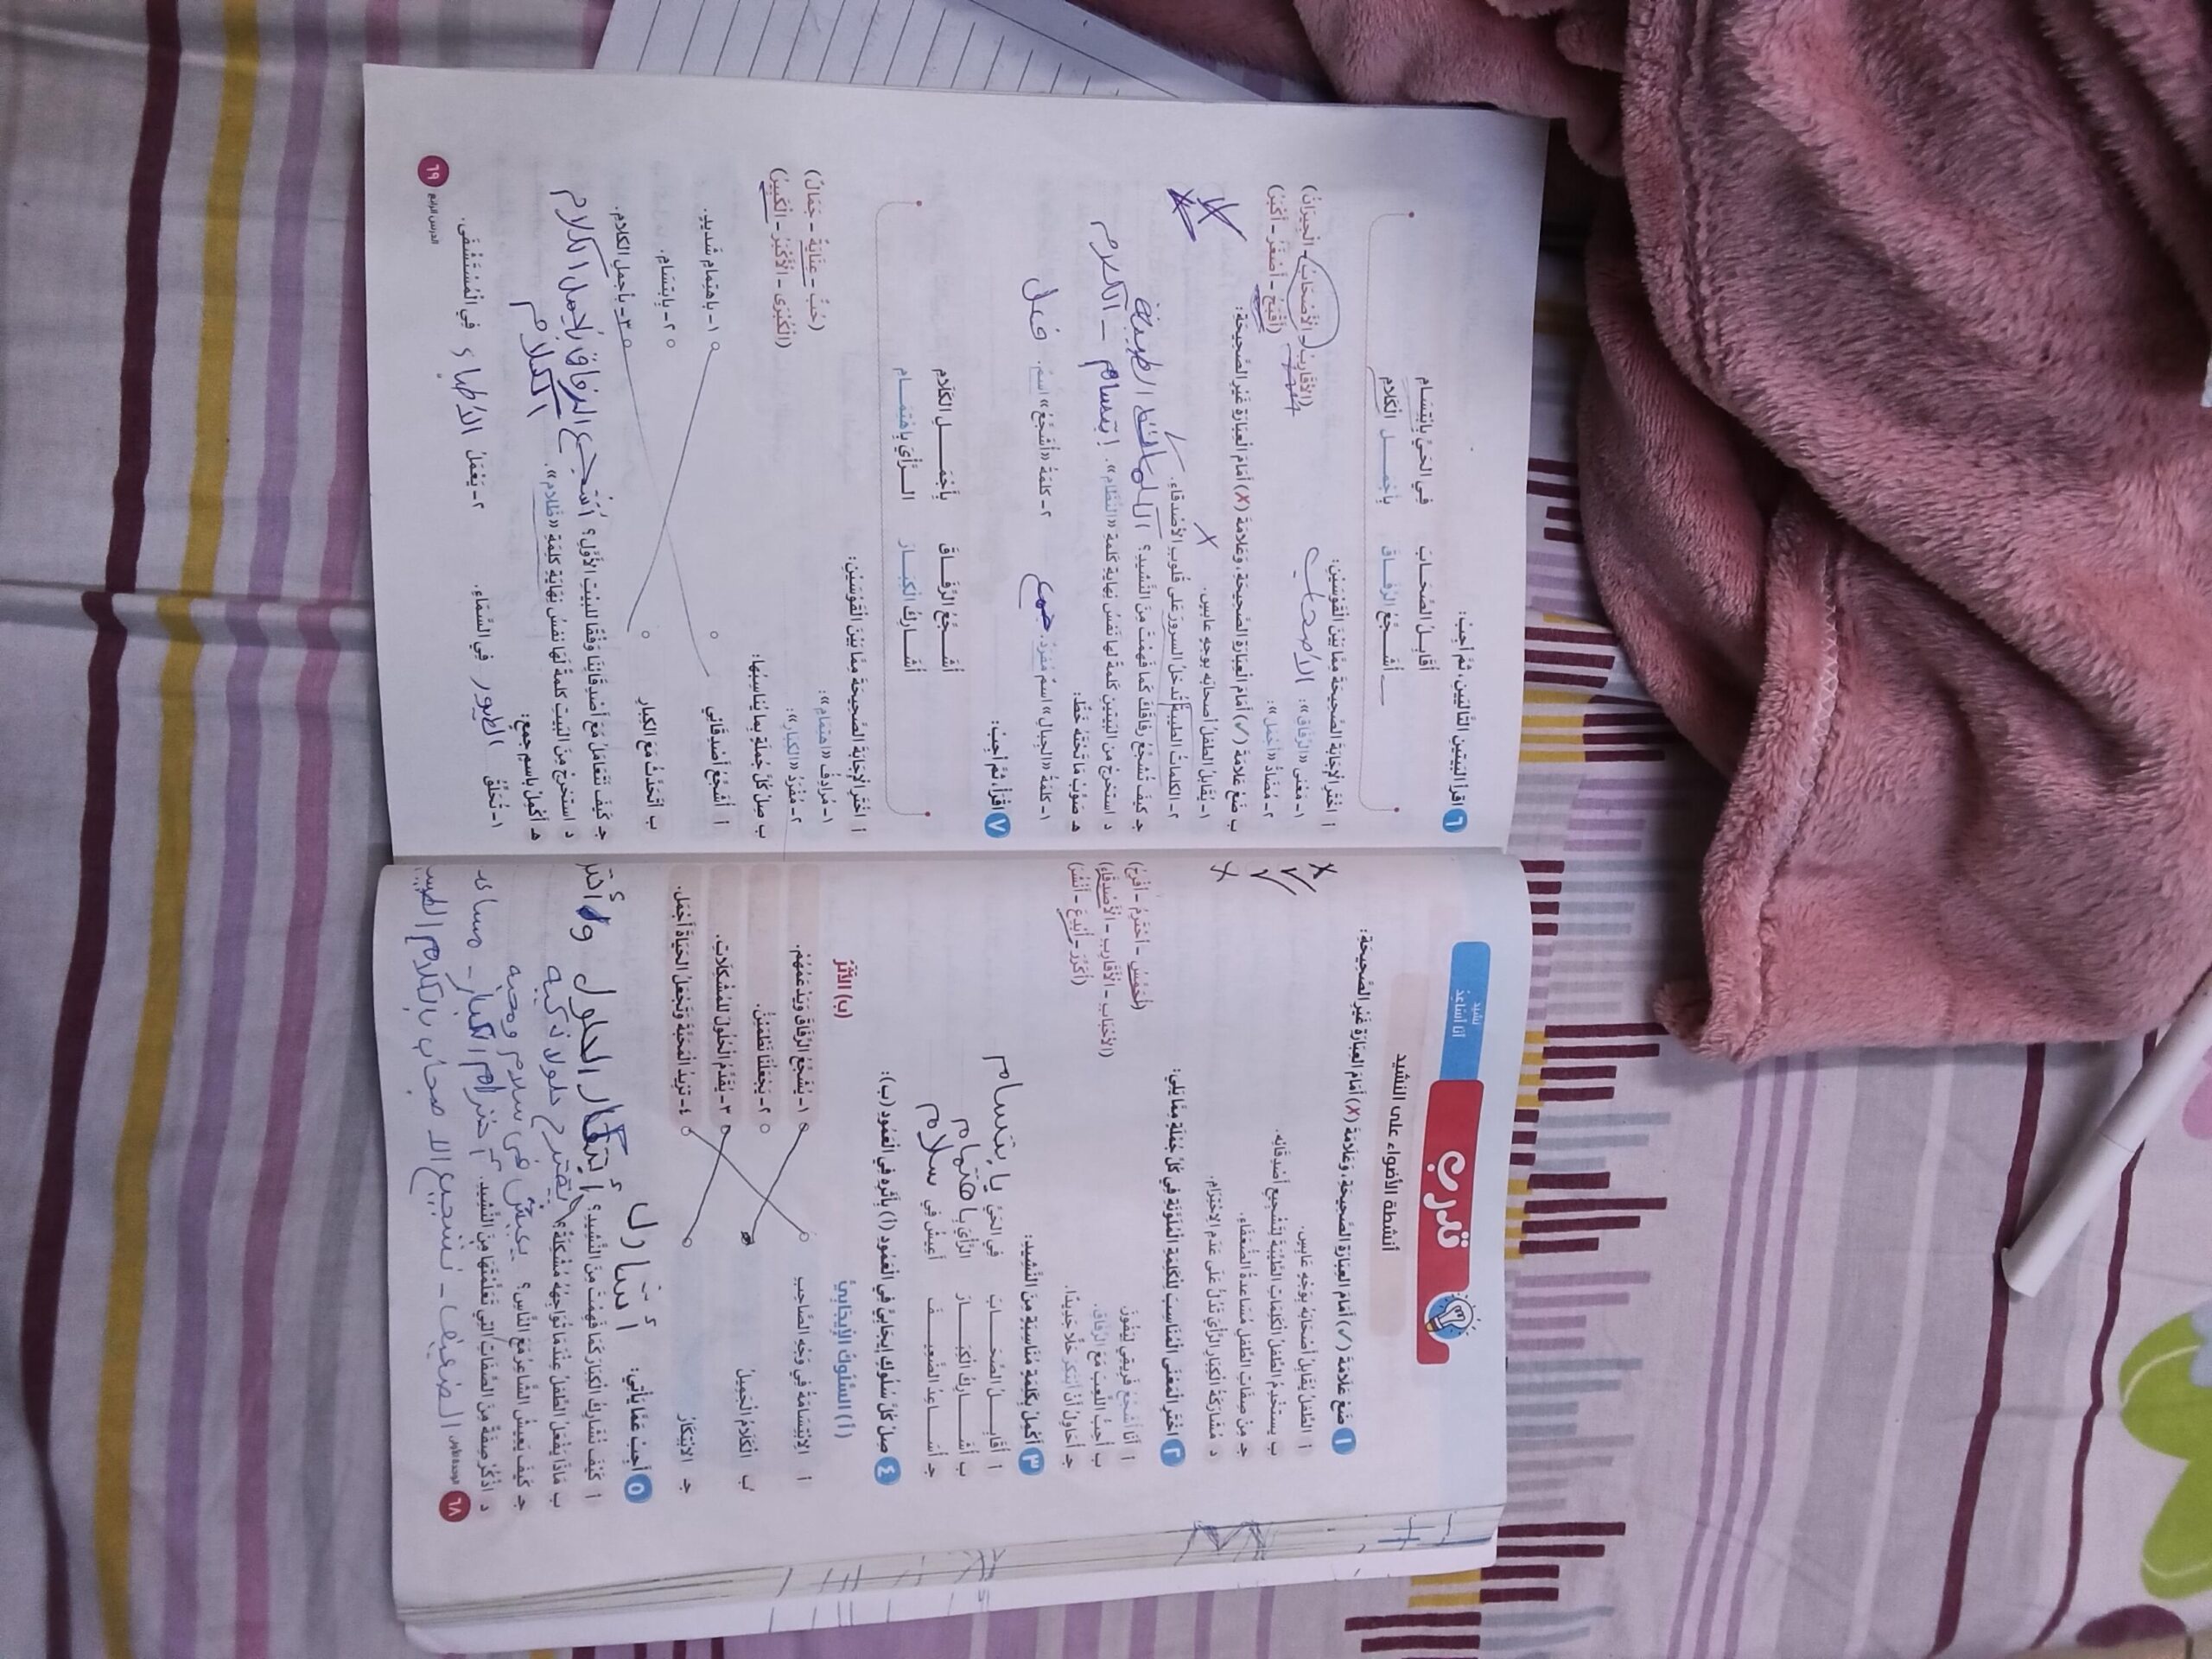 نشيد
أنا أساعد
تدرب
أنشطة الأضواء على النشيد
١ ضَعْ عَلَامَةَ (✓) أَمَامَ الْعِبَارَةِ الصَّحِيحَةِ، وَعَلَامَةَ (X) أَمَامَ الْعِبَارَةِ غَيْرِ الصَّحِيحَةِ:
أ الطِّفْلُ يُقَابِلُ أَصْحَابَهُ بِوَجْهٍ عَابِسٍ. X
ب يَسْتَخْدِمُ الطِّفْلُ الْكَلِمَاتِ الطَّيِّبَةَ لِتَشْجِيعِ أَصْدِقَائِهِ. ✓
جـ مِنْ صِفَاتِ الطِّفْلِ مُسَاعَدَةُ الضُّعَفَاءِ. ✓
د مُشَارَكَةُ الْكِبَارِ الرَّأْيَ تَدُلُّ عَلَى عَدَمِ الِاحْتِرَامِ. X
٢ اخْتَرِ الْمَعْنَى الْمُنَاسِبَ لِلْكَلِمَةِ الْمُلَوَّنَةِ فِي كُلِّ جُمْلَةٍ مِمَّا يَلِي:
أ أَنَا أُشَجِّعُ فَرِيقِي لِيَفُوزَ. (أُحَمِّسُ - أَحْتَرِمُ - أَفْرَحُ)
ب أُحِبُّ اللَّعِبَ مَعَ الرِّفَاقِ. (الْأَحْبَابِ - الْأَقَارِبِ - الْأَصْدِقَاءِ)
جـ أُحَاوِلُ أَنْ أَبْتَكِرَ حَلًّا جَدِيدًا. (أُكَرِّرَ - أُبْدِعَ - أَنْشُرَ)
٣ أَكْمِلْ بِكَلِمَةٍ مُنَاسِبَةٍ مِنَ النَّشِيدِ:
أ أُقَابِـــلُ الصِّحَـــابَ فِي الْحَيِّ بابتسام
ب أُشَـــارِكُ الْكِبَـــارَ الرَّأْيَ باهتمام
جـ أُسَـــاعِدُ الضَّعِيـــفَ أَعِيشُ فِي سلام
٤ صِلْ كُلَّ سُلُوكٍ إِيجَابِيٍّ فِي الْعَمُودِ (أ) بِأَثَرِهِ فِي الْعَمُودِ (ب):
(أ) السُّلُوكُ الْإِيجَابِيُّ (ب) الْأَثَرُ
أ الِابْتِسَامَةُ فِي وَجْهِ الصَّاحِبِ ١- يُشَجِّعُ الرِّفَاقَ وَيَدْعَمُهُمْ.
٢- يَجْعَلُنَا نَطْمَئِنُّ.
ب الْكَلَامُ الْجَمِيلُ ٣- يُقَدِّمُ الْحُلُولَ لِلْمُشْكِلَاتِ.
جـ الِابْتِكَارُ ٤- تَزِيدُ الْمَحَبَّةَ وَتَجْعَلُ الْحَيَاةَ أَجْمَلَ.
٥ أَجِبْ عَمَّا يَأْتِي: أشارك
أ كَيْفَ تُشَارِكُ الْكِبَارَ كَمَا فَهِمْتَ مِنَ النَّشِيدِ؟ أبتكار الحلول
ب مَاذَا يَفْعَلُ الطِّفْلُ عِنْدَمَا تُوَاجِهُهُ مُشْكِلَةٌ؟ يقترح حلولا ذكيه
جـ كَيْفَ يَعِيشُ الشَّاعِرُ مَعَ النَّاسِ؟ يعيش فى سلام ومحبه
د اذْكُرْ صِفَةً مِنَ الصِّفَاتِ الَّتِي تَعَلَّمْتَهَا مِنَ النَّشِيدِ. أحترام الكبار -
الضعيف - تشجيع الاصحاب بالكلام الطيب
٦٨ الوحدة الأولى
٦ اقْرَأِ الْبَيْتَيْنِ التَّالِيَيْنِ، ثُمَّ أَجِبْ:
أُقَابِـــلُ الصِّحَـــابَ فِي الْحَيِّ بِابْتِسَـــام
أُشَـــجِّعُ الرِّفَـــاقَ بِأَجْمَـــلِ الْكَلَام
أ اخْتَرِ الْإِجَابَةَ الصَّحِيحَةَ مِمَّا بَيْنَ الْقَوْسَيْنِ:
١- مَعْنَى «الرِّفَاقَ»: الأصحاب (الْأَقَارِبُ - الْأَصْحَابُ - الْجِيرَانُ)
٢- مُضَادُّ «أَجْمَل»: (أَقْبَحُ - أَصْغَرُ - أَكْبَرُ)
ب ضَعْ عَلَامَةَ (✓) أَمَامَ الْعِبَارَةِ الصَّحِيحَةِ، وَعَلَامَةَ (X) أَمَامَ الْعِبَارَةِ غَيْرِ الصَّحِيحَةِ:
١- يُقَابِلُ الطِّفْلُ أَصْحَابَهُ بِوَجْهٍ عَابِسٍ. X
٢- الْكَلِمَاتُ الطَّيِّبَةُ تُدْخِلُ السُّرُورَ عَلَى قُلُوبِ الْأَصْدِقَاءِ.
جـ كَيْفَ تُشَجِّعُ رِفَاقَكَ كَمَا فَهِمْتَ مِنَ النَّشِيدِ؟ الطيبة
د اسْتَخْرِجْ مِنَ الْبَيْتَيْنِ كَلِمَةً لَهَا نَفْسُ نِهَايَةِ كَلِمَةِ «النِّظَام». ابتسام - الكلام
هـ صَوِّبْ مَا تَحْتَهُ خَطٌّ:
١- كَلِمَةُ «الْجِبَال» اسْمٌ مُفْرَدٌ. جمع ٢- كَلِمَةُ «أُشَجِّعُ» اسْمٌ. فعل
٧ اقْرَأْ، ثُمَّ أَجِبْ:
أُشَـــجِّعُ الرِّفَـــاقَ بِأَجْمَـــلِ الْكَلَام
أُشَـــارِكُ الْكِبَـــارَ الـــرَّأْيَ بِاهْتِمَـــام
أ اخْتَرِ الْإِجَابَةَ الصَّحِيحَةَ مِمَّا بَيْنَ الْقَوْسَيْنِ:
١- مُرَادِفُ «اهْتِمَام»: (حُبٌّ - عِنَايَةٌ - جَمَالٌ)
٢- مُفْرَدُ «الْكِبَار»: (الْكُبْرَى - الْأَكْبَرُ - الْكَبِيرُ)
ب صِلْ كُلَّ جُمْلَةٍ بِمَا يُنَاسِبُهَا:
أ أُشَجِّعُ أَصْدِقَائِي ١- بِاهْتِمَامٍ شَدِيدٍ.
٢- بِابْتِسَامٍ.
ب أَتَحَدَّثُ مَعَ الْكِبَارِ ٣- بِأَجْمَلِ الْكَلَامِ.
جـ كَيْفَ نَتَعَامَلُ مَعَ أَصْدِقَائِنَا وَفْقًا لِلْبَيْتِ الْأَوَّلِ؟ أشجع الرفاق بأجمل الكلام
د اسْتَخْرِجْ مِنَ الْبَيْتِ كَلِمَةً لَهَا نَفْسُ نِهَايَةِ كَلِمَةِ «ظَلَام». الكلام
هـ أَكْمِلْ بِاسْمِ جَمْعٍ:
١- تُحَلِّقُ الطيور فِي السَّمَاءِ. ٢- يَعْمَلُ الأطباء فِي الْمُسْتَشْفَى.
الدرس الرابع ٦٩